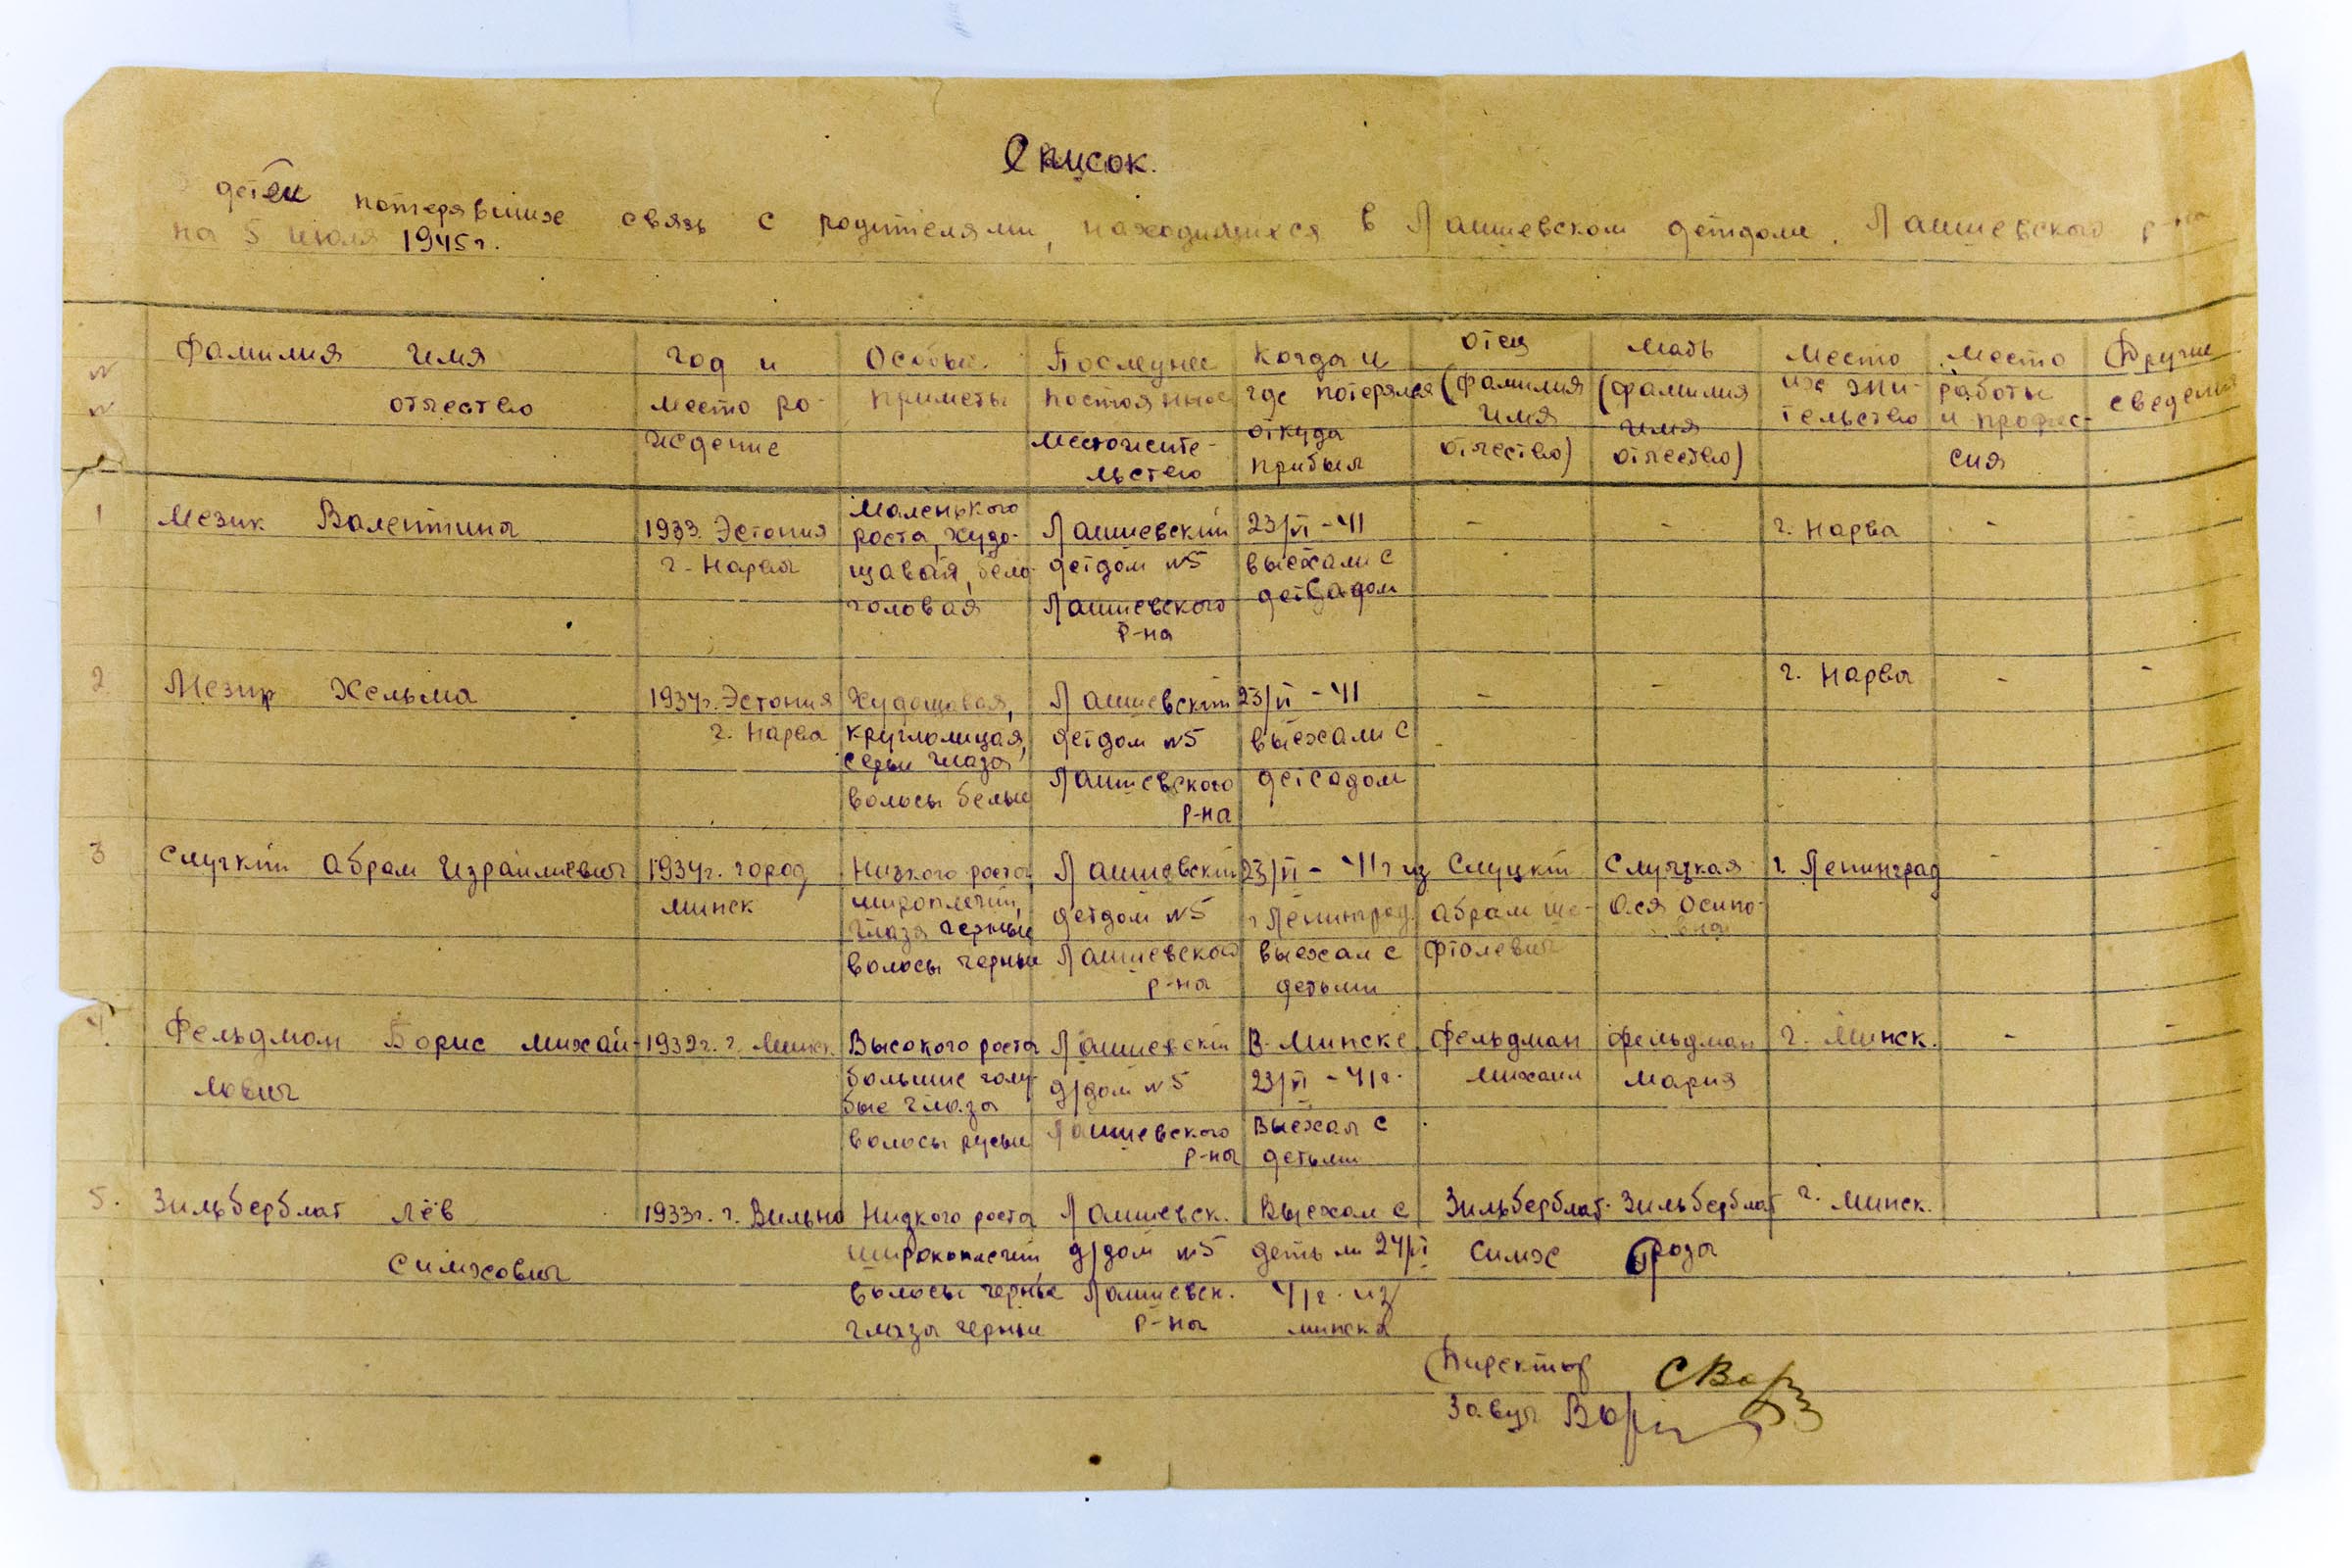 Список.
детей потерявших связь с родителями, находящихся в Лаишевском детдоме, Лаишевского р-на
на 5 июля 1945г.
N N
Фамилия Имя отчество
Год и место рождение
Особые приметы
Последнее постоянное местожительство
Когда и где потерялся откуда прибыл
Отец (фамилия имя отчество)
Мать (фамилия имя отчество)
Место их жительство
Место работы и профессия
Другие сведения
1
Мезик Валентина
1933. Эстония
г. Нарва
Маленького
роста, худо-
щавая, бело-
головая
Лаишевский
детдом N5
Лаишевского
р-на
23/VI - 41
выехали с
детсадом
-
-
г. Нарва
-
-
2
Мезир Хельма
1934г. Эстония
г. Нарва
Худощавая,
круглолицая,
серые глаза
волосы белые
Лаишевский
детдом N5
Лаишевского
р-на
23/VI - 41
выехали с
детсадом
-
-
г. Нарва
-
-
3
Слуцкий Абрам Израилиевич
1934г. город
Минск
Низкого роста,
широплечий,
глаза черные
волосы черные
Лаишевский
детдом N5
Лаишевского
р-на
23/VI - 41г из
г Ленинград
выехал с
детьми
Слуцкий
Абрам Ше-
фтолевич
Слуцкая
Ося Осипо-
вна
г. Ленинград
-
-
4.
Фельдман Борис Михай-
лович
1932г. г. Минск
Высокого роста
большие голу-
бые глаза
волосы русые
Лаишевский
д/дом N5
Лаишевского
р-на
В. Минске
23/VI - 41г.
Выехал с
детьми
Фельдман
Михаил
Фельдман
Мария
г. Минск.
-
-
5.
Зильберблат Лёв
Симхович
1933г. г. Вильно
Низкого роста
широкоплечий
волосы черные
глаза черные
Лаишевск.
д/дом N5
Лаишевск.
р-на
Выехал с
детьми 24/VI
41г. из
Минска
Зильберблат.
Симх
Зильберблат
Роза
г. Минск.
Директор
Завуч